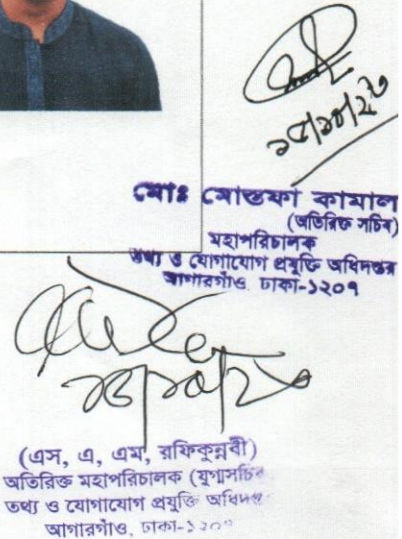 মোঃ মোস্তফা কামাল
(অতিরিক্ত সচিব)
মহাপরিচালক
তথ্য ও যোগাযোগ প্রযুক্তি অধিদপ্তর
আগারগাঁও, ঢাকা-১২০৭
(এস, এ, এম, রফিকুন্নবী)
অতিরিক্ত মহাপরিচালক (যুগ্মসচিব
তথ্য ও যোগাযোগ প্রযুক্তি অধিদপ্তর
আগারগাঁও, ঢাকা-১২০৭